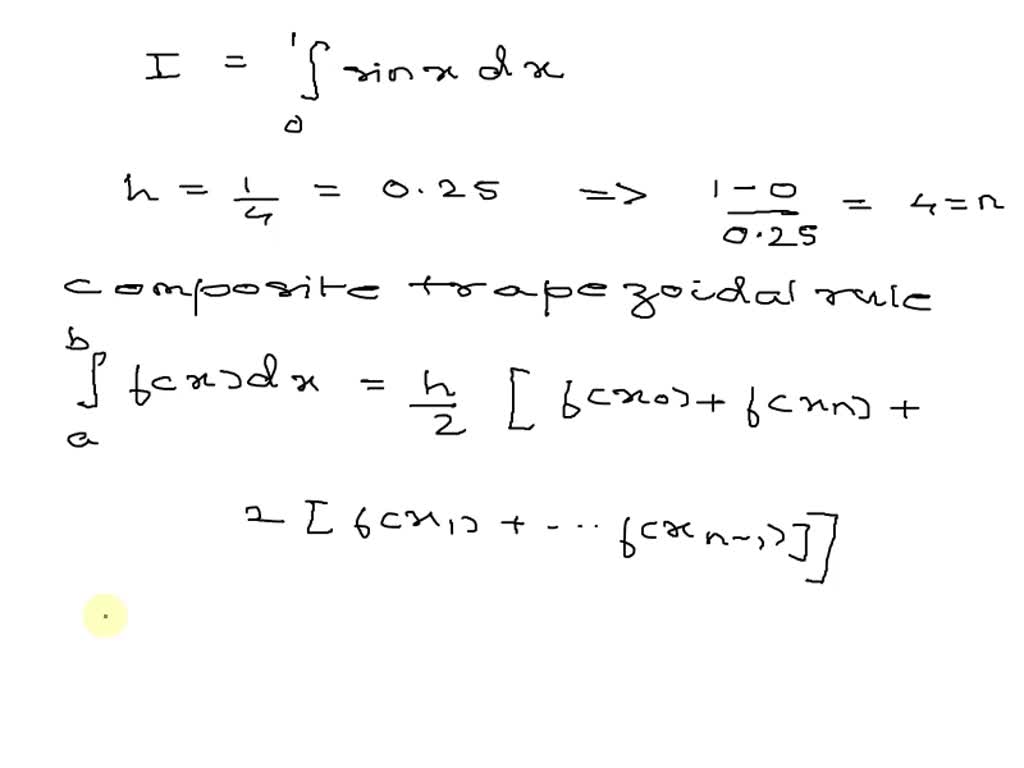 I = ∫₀¹ sin x dx
h = 1/4 = 0.25 => (1-0)/0.25 = 4 = n
composite trapezoidal rule
∫ₐᵇ f(x)dx = h/2 [f(x₀) + f(xₙ) +
2 [f(x₁) + -... f(xₙ₋₁)]]